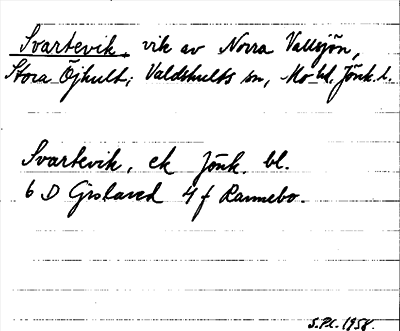 Svartevik, vik av Norra Vallsjön,
Stora Öjhult, Valdshults sn, Mo hd. Jönk. l.
Svartevik, ek Jönk. bl.
6 D Gislaved 4 f Rannebo.
S.Pl. 1958.